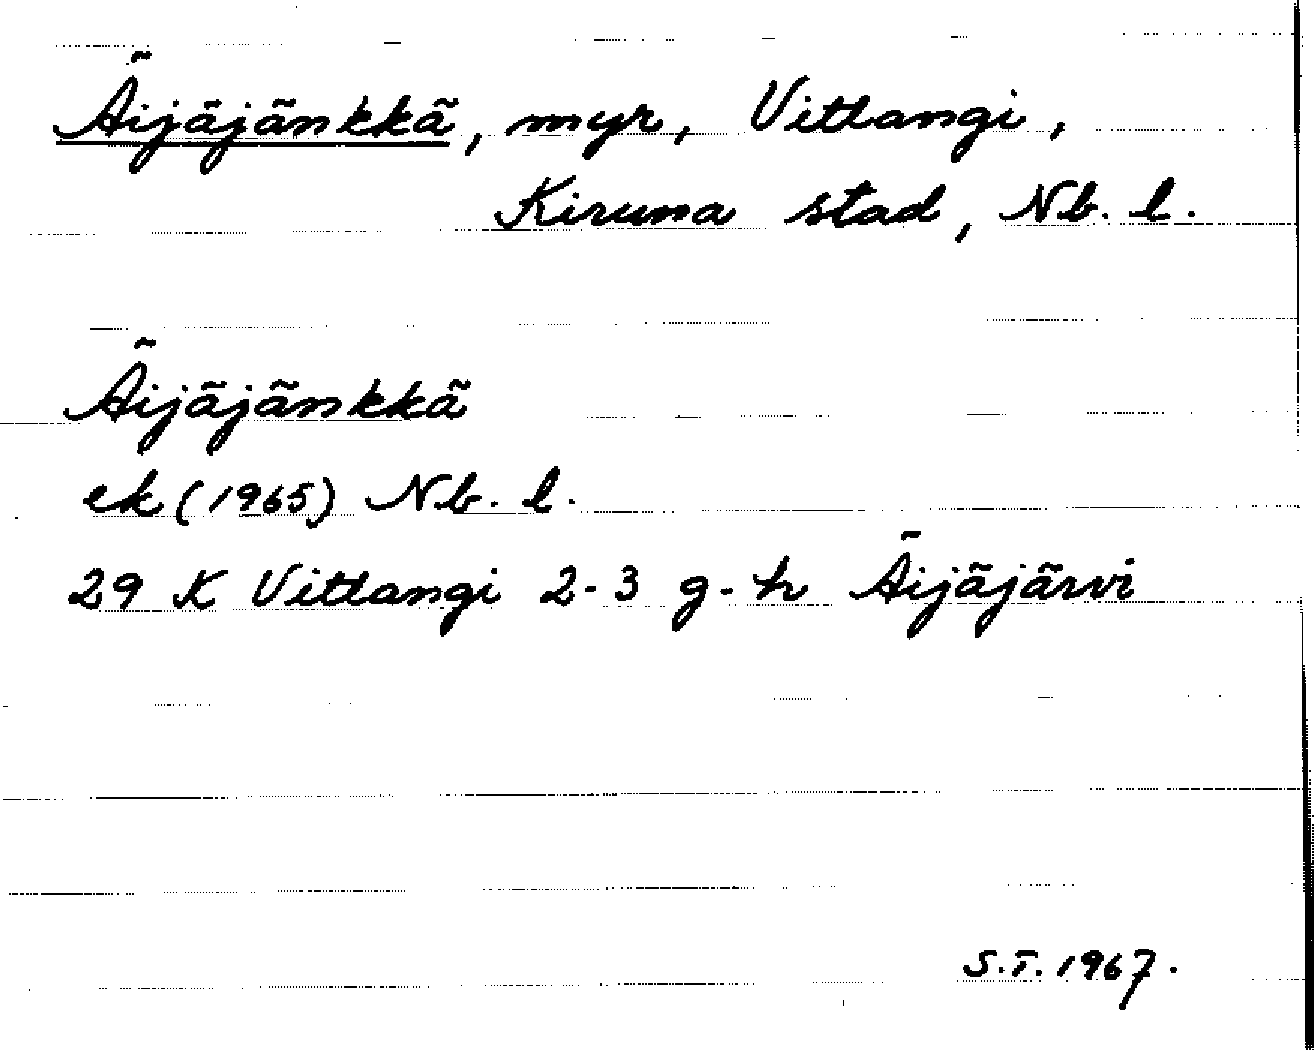 Äijäjänkkä, myr, Vittangi,
Kiruna stad, Nb. l.
Äijäjänkkä
ek (1965) Nb. l.
29 K Vittangi 2-3 g-h Äijäjärvi
S.T. 1967.